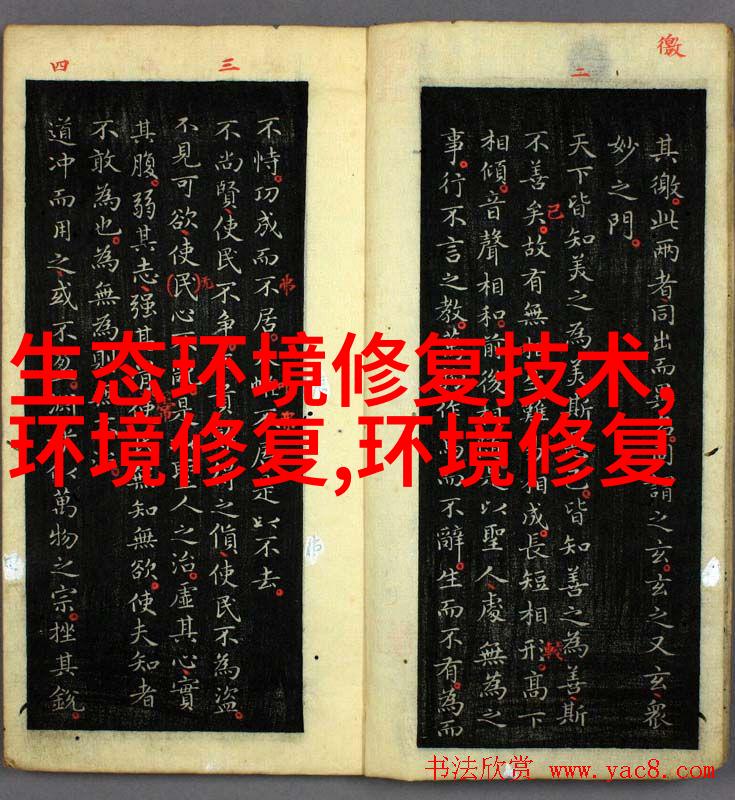 徼
二
其徼。此兩者同出而 同謂之玄。玄之又玄、衆
妙之門。
天下皆知美之為美斯 已。皆知善之為善斯
不善矣。故有無相 難 相成。長短相形。高下
相傾。音聲相和。前後相 是以聖人處無為之
事。行不言之教。萬 作 而不辭。生而不有。為而
已
較
三
四
不恃。功成而不居。 不居是以不去。
不尚賢、使民不争。 貴 之貨、使民不為盜。
不見可欲、使(民)心 是 聖人之治。虛其心、實
其腹。弱其志、强其骨 使 無知無欲。使夫知者
不敢為也。為無為則
道冲而用之、或不盈。淵 似萬物之宗。挫其銳
生态环境修复技术,
环境修复,环境修复
书法欣赏 www.yac8.com